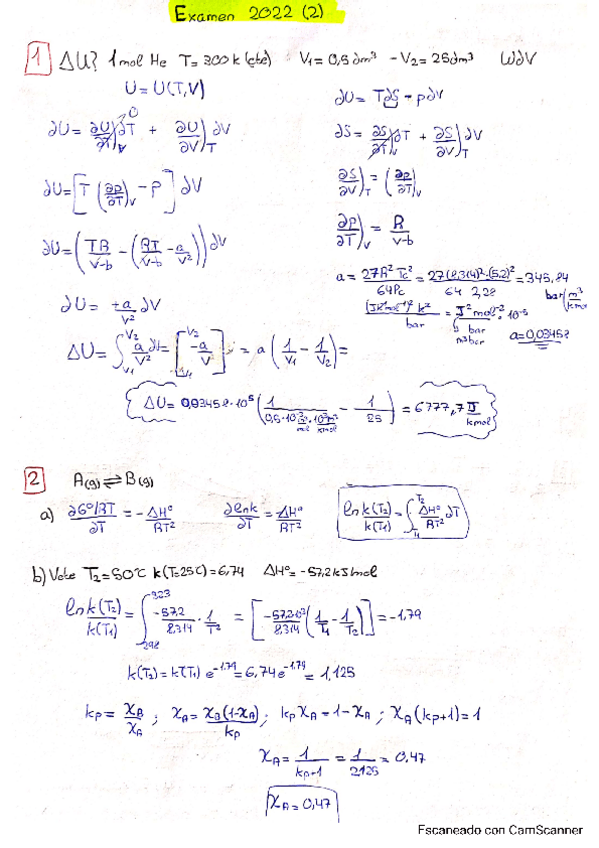 Examen 2022 (2)
1 ΔU? 1mol He T= 300k (cte) V₁= 0,5dm³ - V₂= 25dm³ WdV
U = U(T,V)
∂U = T∂S - p∂V
∂U = ∂U/∂T)_V ∂T + ∂U/∂V)_T ∂V
0
∂S = ∂S/∂T)_V ∂T + ∂S/∂V)_T ∂V
∂U = [T (∂p/∂T)_V - P] ∂V
∂S/∂V)_T = (∂p/∂T)_V
∂P/∂T)_V = R/V-b
∂U = (TR/V-b - (RT/V-b - a/V²)) ∂V
a = 27R²Tc²/64Pc = 27(8,314)²·(5,2)²/64 2,28 = 345,84
∂U = +a/V² ∂V
bar = J² mol⁻² · 10⁻⁵
m³bar
a=0,03458
ΔU = ∫ a/V² ∂V = [-a/V] = a (1/V₁ - 1/V₂) =
ΔU = 0,03458·10⁵ (1/0,5·10⁻³ m³/mol · 10³ mol/kmol - 1/25) = 6777,7 J/kmol
2 A(g) ⇌ B(g)
a) ∂G°/RT/∂T = - ΔH°/RT² ∂lnk/∂T = ΔH°/RT² ln k(T₂)/k(T₁) = ∫ ΔH°/RT² ∂T
b) T₂ = 50°C k(T=25C) = 6,74 ΔH° = -57,2 kJ/mol
ln k(T₂)/k(T₁) = ∫₂₉₈³²³ -57,2/8,314 · 1/T² = [-57,2·10³/8,314 (1/T₁ - 1/T₂)] = -1,79
k(T₂) = k(T₁) e⁻¹·⁷⁹ = 6,74 e⁻¹·⁷⁹ = 1,125
kp = x_B/x_A ; x_A = x_B(1-x_A)/kp ; kp x_A = 1 - x_A ; x_A (kp+1) = 1
x_A = 1/kp+1 = 1/2,125 = 0,47
x_A = 0,47
Escaneado con CamScanner